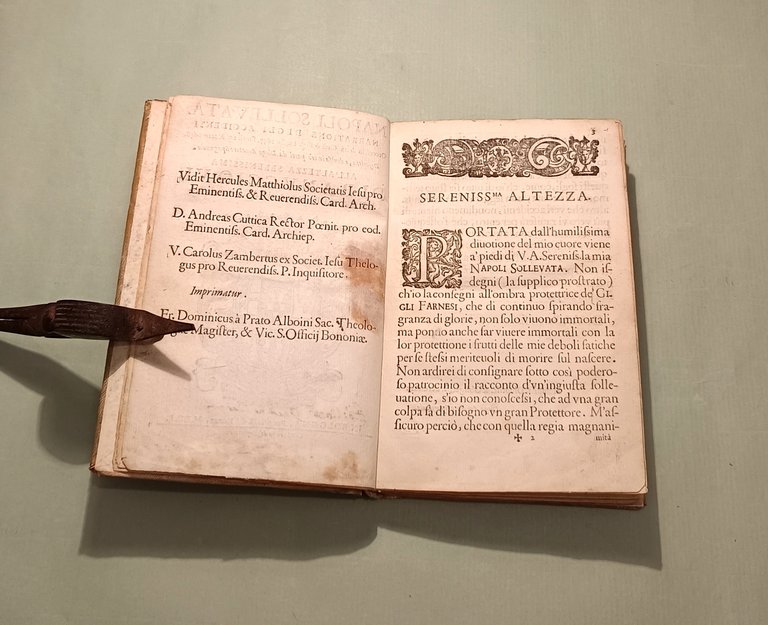 Vidit Hercules Matthiolus Societatis Iesu pro
Eminentiss. & Reuerendiss. Card. Arch.
D. Andreas Cuttica Rector Pœnit. pro eod.
Eminentiss. Card. Archiep.
V. Carolus Zambertus ex Societ. Iesu Theolo-
gus pro Reuerendiss. P. Inquisitore.
Imprimatur.
Fr. Dominicus à Prato Alboini Sac. Theolo-
giæ Magister, & Vic. S. Officij Bononiæ.
3
SERENISS.MA ALTEZZA.
PORTATA dall'humilissima
diuotione del mio cuore viene
a' piedi di V. A. Sereniss. la mia
NAPOLI SOLLEVATA. Non is-
degni (la supplico prostrato)
ch'io la consegni all'ombra protettrice de' GI-
GLI FARNESI, che di continuo spirando fra-
granza di glorie, non solo viuono immortali,
ma ponno anche far viuere immortali con la
lor protettione i frutti delle mie deboli fatiche
per se stessi meriteuoli di morire sul nascere.
Non ardirei di consignare sotto così podero-
so patrocinio il racconto d'vn'ingiusta solle-
uatione, s'io non conoscessi, che ad vna gran
colpa fà di bisogno vn gran Protettore. M'as-
sicuro perciò, che con quella regia magnani-
✠ 2 mità